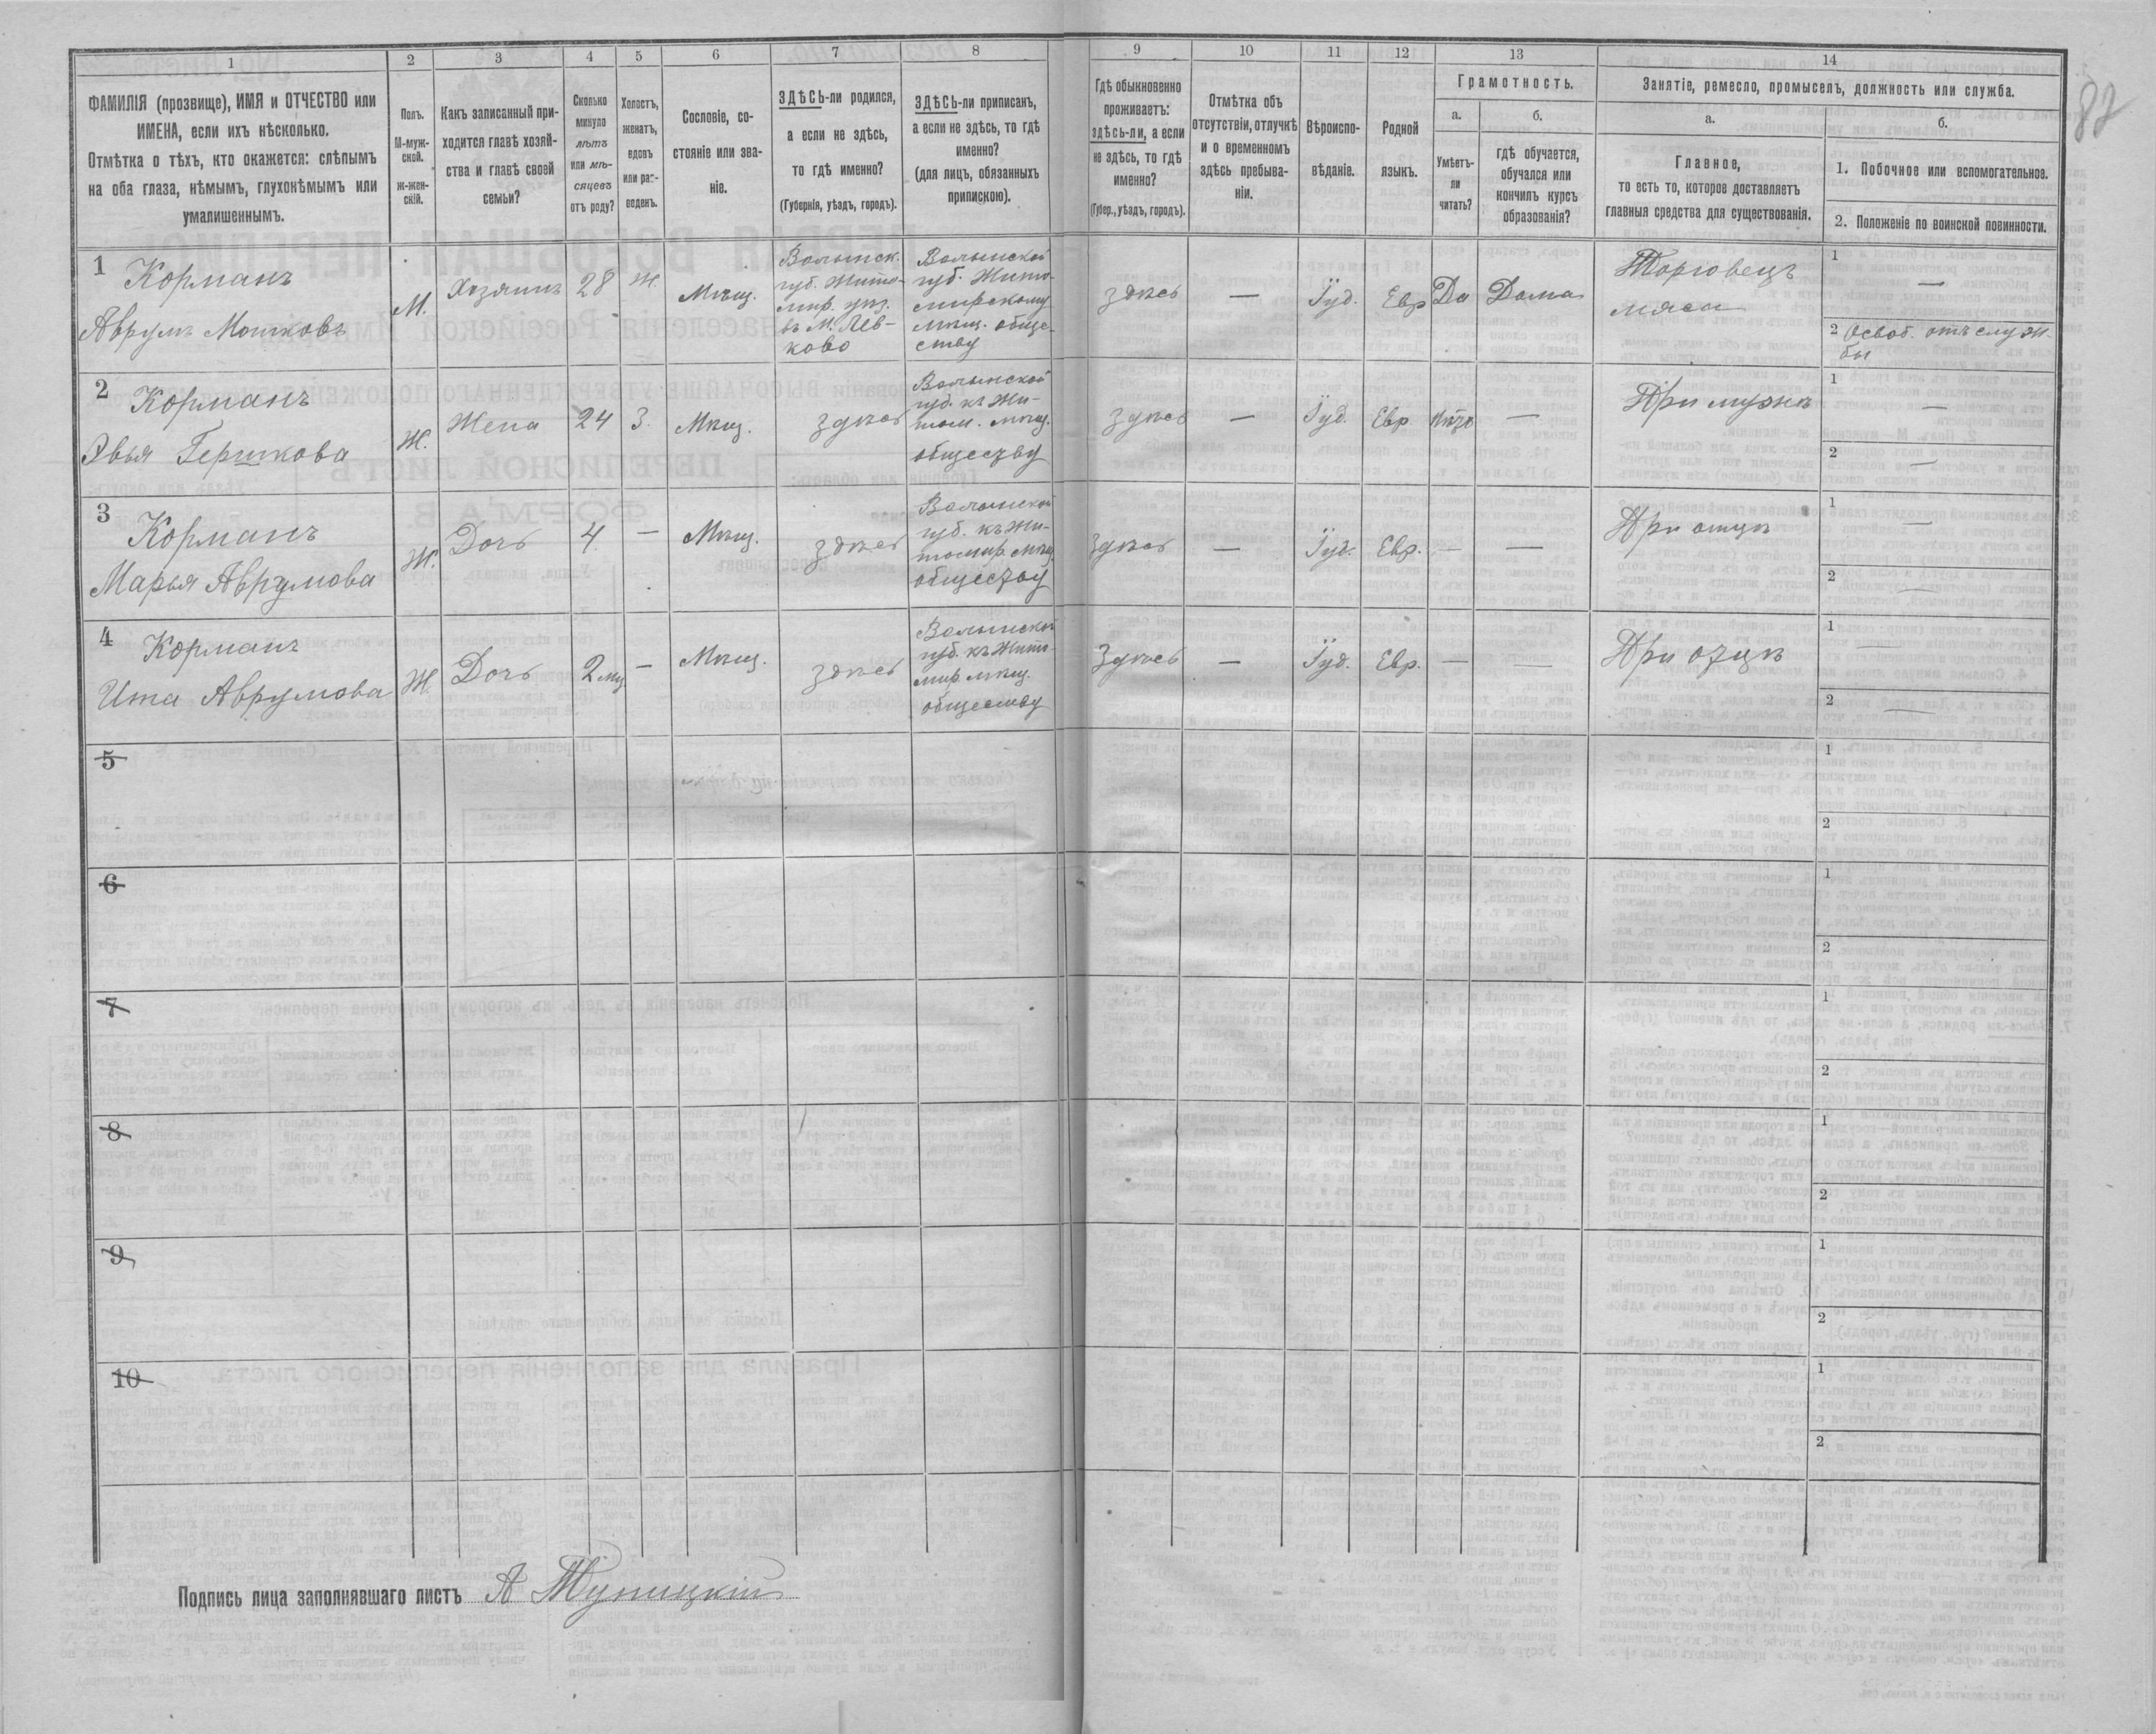 87
1
2
3
4
5
6
7
8
9
10
11
12
13
14
ФАМИЛІЯ (прозвище), ИМЯ и ОТЧЕСТВО или
ИМЕНА, если ихъ нѣсколько.
Отмѣтка о тѣхъ, кто окажется: слѣпымъ
на оба глаза, нѣмымъ, глухонѣмымъ или
умалишеннымъ.
Полъ.
М-муж-
ской.
Ж-жен-
скій.
Какъ записанный при-
ходится главѣ хозяй-
ства и главѣ своей
семьи?
Сколько
минуло
лѣтъ
или мѣ-
сяцевъ
отъ роду?
Холостъ,
женатъ,
вдовъ
или раз-
веденъ.
Сословіе, со-
стояніе или зва-
ніе.
ЗДѢСЬ-ли родился,
а если не здѣсь,
то гдѣ именно?
(Губернія, уѣздъ, городъ).
ЗДѢСЬ-ли приписанъ,
а если не здѣсь, то гдѣ
именно?
(для лицъ, обязанныхъ
припискою).
Гдѣ обыкновенно
проживаетъ:
здѣсь-ли, а если
не здѣсь, то гдѣ
именно?
(Губер., уѣздъ, городъ).
Отмѣтка объ
отсутствіи, отлучкѣ
и о временномъ
здѣсь пребыва-
ніи.
Вѣроиспо-
вѣданіе.
Родной
языкъ.
Грамотность.
а.
б.
Умѣетъ-
ли
читать?
гдѣ обучается,
обучался или
кончилъ курсъ
образованія?
Занятіе, ремесло, промыселъ, должность или служба.
а.
б.
Главное,
то есть то, которое доставляетъ
главныя средства для существованія.
1. Побочное или вспомогательное.
2. Положеніе по воинской повинности.
1
Корманъ
Аврумъ Мошковъ
М.
Хозяинъ
28
Ж
Мѣщ.
Волынск.
губ. Жито-
мир. уѣз.
въ м. Лев-
ково
Волынской
губ. Жито-
мирскому
мѣщ. обще-
ству
здѣсь
—
Іуд.
Евр
Да
Дома
Торговецъ
мяса
1 —
2 Освоб. отъ служ-
бы
2
Корманъ
Эвья Гершкова
Ж.
Жена
24
З.
Мѣщ.
здѣсь
Волынской
губ. къ Жи-
том. мѣщ.
обществу
здѣсь
—
Іуд.
Евр
Нѣтъ
—
При мужѣ
1 —
2 —
3
Корманъ
Марья Аврумова
Ж.
Дочь
4
—
Мѣщ.
здѣсь
Волынской
губ. къ Жи-
томир. мѣщ.
обществу
здѣсь
—
Іуд.
Евр.
—
—
При отцѣ
1 —
2 —
4
Корманъ
Ита Аврумова
Ж.
Дочь
2 мц
—
Мѣщ.
здѣсь
Волынской
губ. къ Жито-
мир мѣщ.
обществу
Здѣсь
—
Іуд.
Евр.
—
—
При отцѣ
1 —
2 —
5
1
2
6
1
2
7
1
2
8
1
2
9
1
2
10
1
2
Подпись лица заполнявшаго листъ А Тупицкій